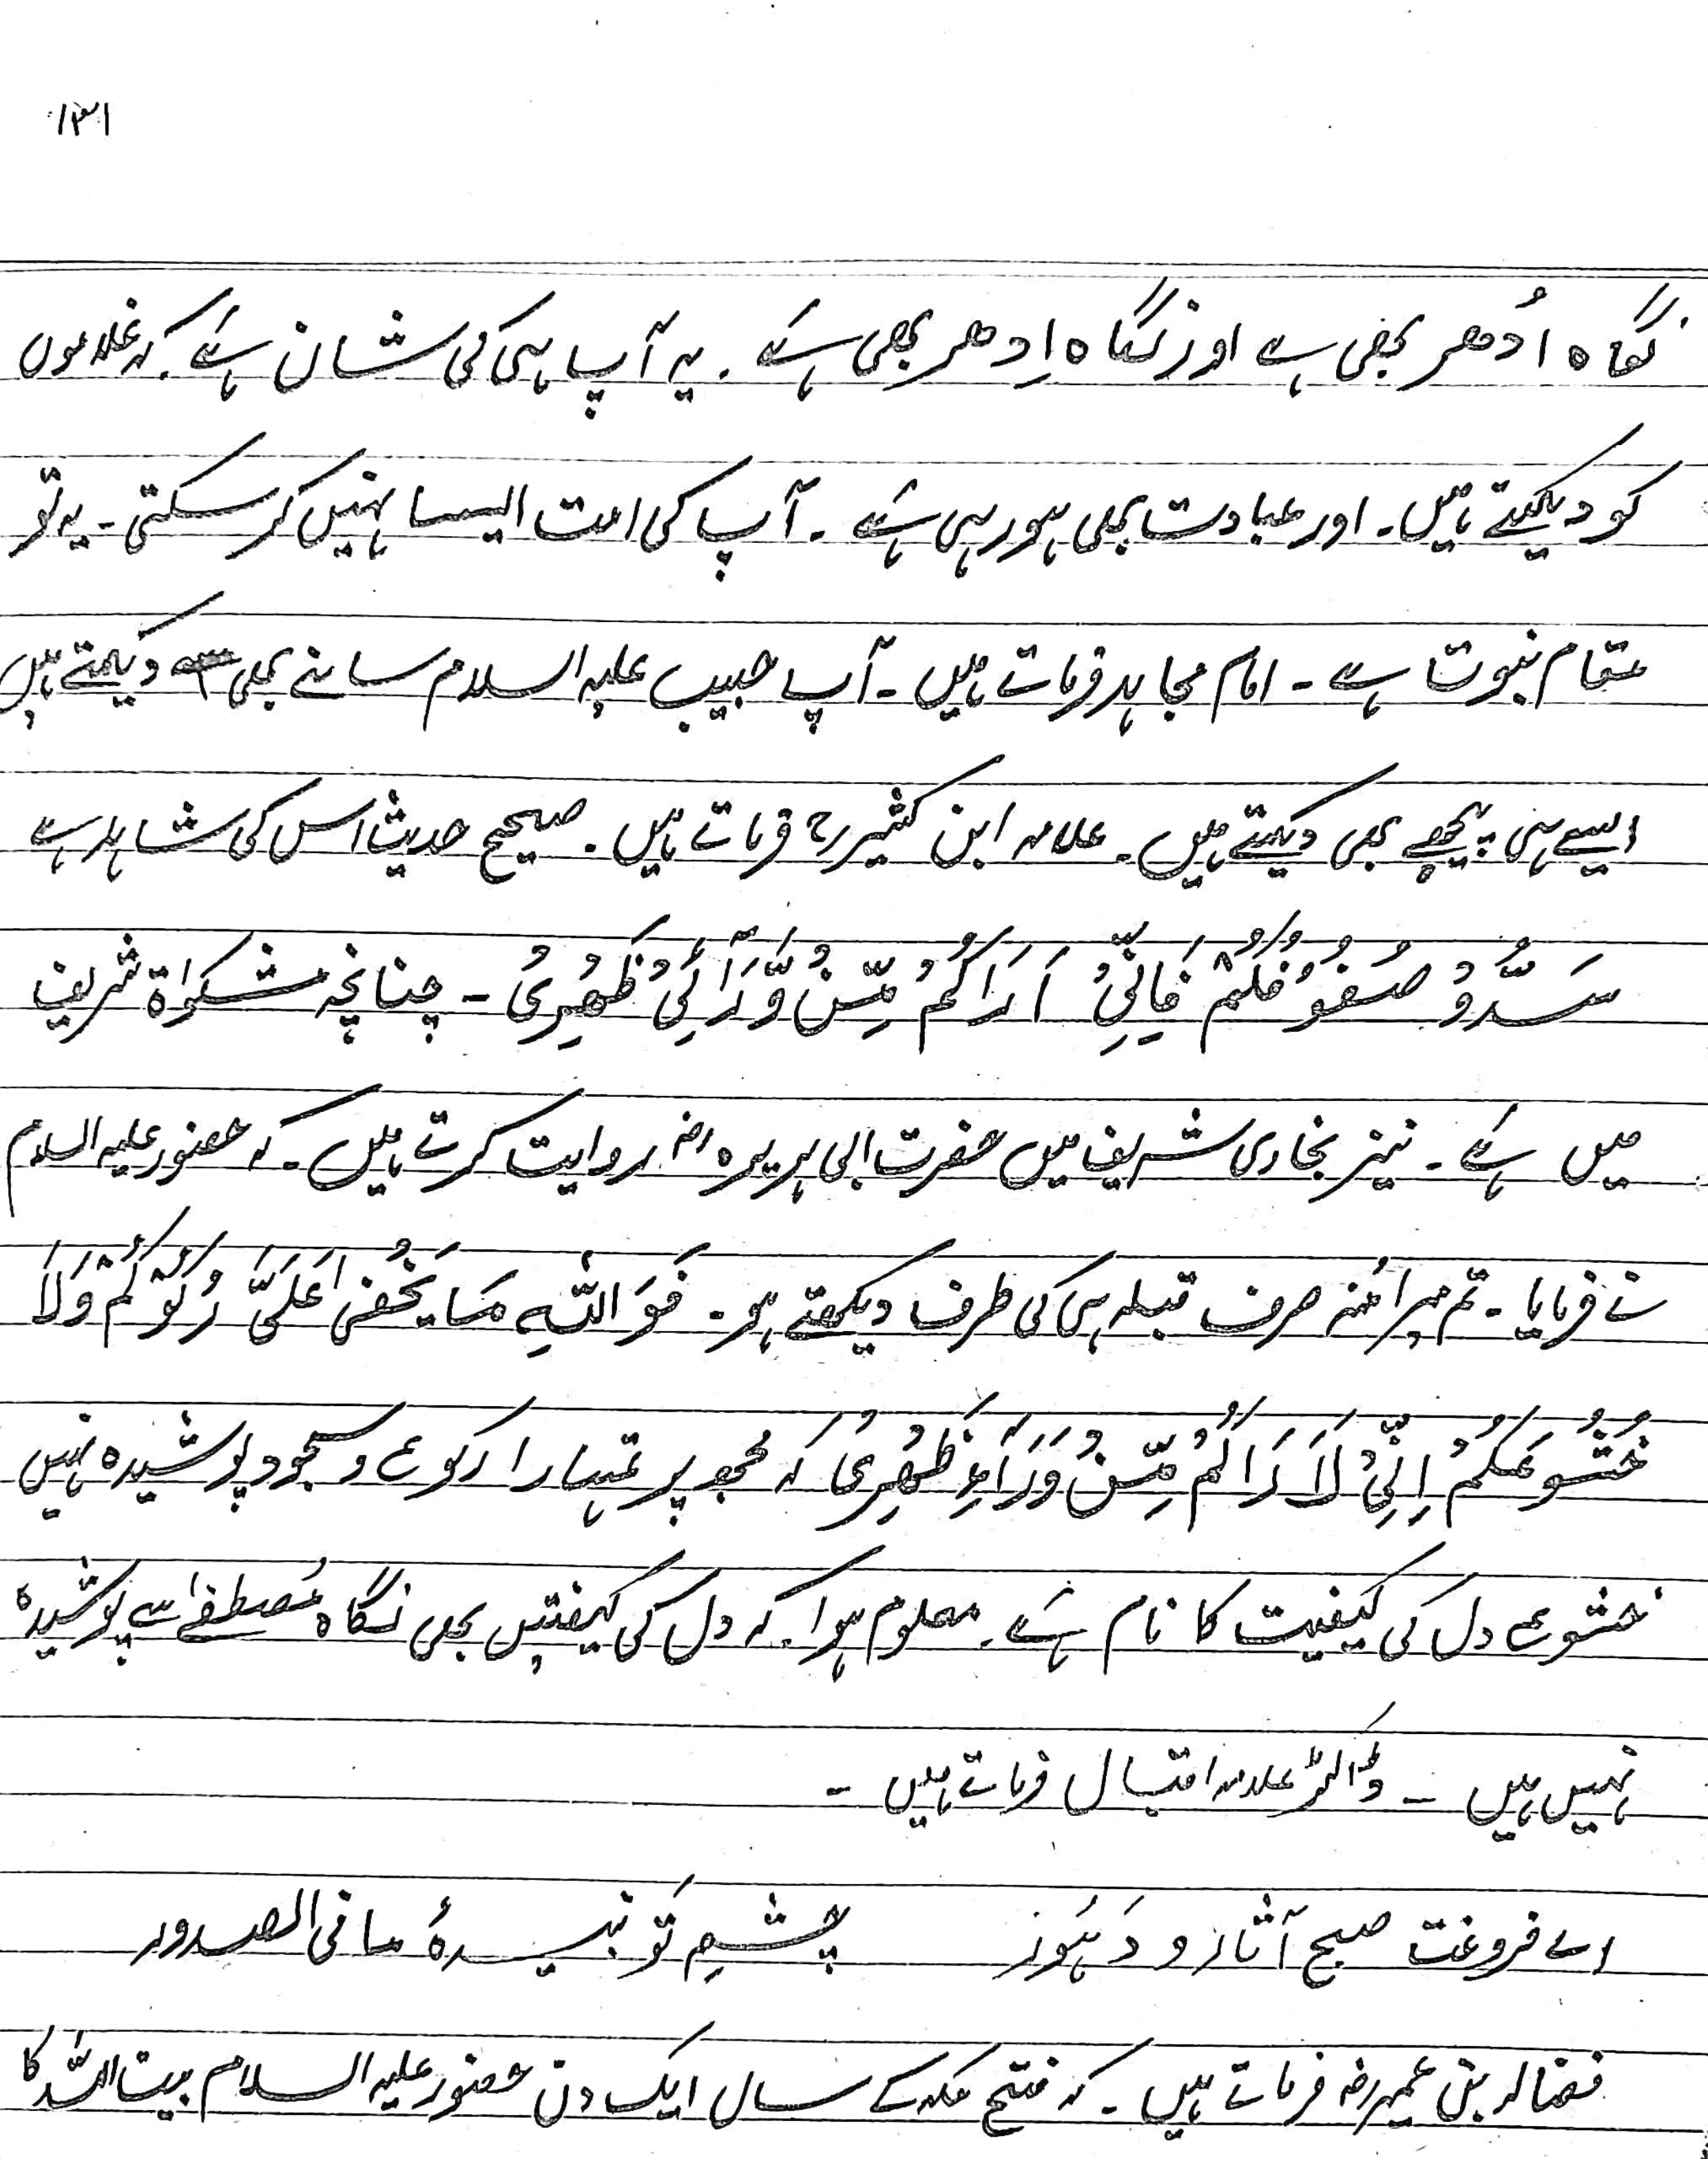 ۱۳۱
نگاہ اُدھر بھی ہے اور نگاہ اِدھر بھی ہے۔ یہ آپ ہی کی شان ہے۔ کہ غلاموں
کو دیکھتے ہیں۔ اور عبادت بھی ہو رہی ہے۔ آپ کی امت ایسا نہیں کر سکتی۔ یہ تو
مقام نبوت ہے۔ امام مجاہد فرماتے ہیں۔ آپ حبیب علیہ السلام سامنے بھی دیکھتے ہیں
ایسے ہی پیچھے بھی دیکھتے ہیں۔ علامہ ابن کثیر رح فرماتے ہیں۔ صحیح حدیث اس کی شاہد ہے
سَدُّوْ صُفُوْفَکُمْ فَاِنِّیْ اَرَاکُمْ مِّنْ وَّرَآئِیْ ظَھْرِیْ۔ چنانچہ مشکواۃ شریف
میں ہے۔ نیز بخاری شریف میں حضرت ابی ہریرہ رضہ روایت کرتے ہیں۔ کہ حضور علیہ السلام
نے فرمایا۔ تم میرا منہ صرف قبلہ ہی کی طرف دیکھتے ہو۔ فَوَ اللّٰہِ مَا یَخْفٰی عَلَیَّ رُکُوْکُمْ وَلَا
خُشُوْعَکُمْ اِنِّیْ لَاَرَاکُمْ مِّنْ وَرَآءِ ظَھْرِیْ کہ مجھ پر تمہارا رکوع و سجود پوشیدہ نہیں
خشوع دل کی کیفیت کا نام ہے۔ معلوم ہوا۔ کہ دل کی کیفتیں بھی نگاہ مُصطفےٰ سے پوشیدہ
نہیں ہیں ۔ ڈاکٹر علامہ اقبال فرماتے ہیں ۔
اے فروغت صبح آثار و دَہُور چشمِ تَو بنیدۂ ما فی الصدور
فضالہ بن عمیر رضہ فرماتے ہیں۔ کہ فتح مکہ کے سال ایک دن حضور علیہ السلام بیت اللہ کا